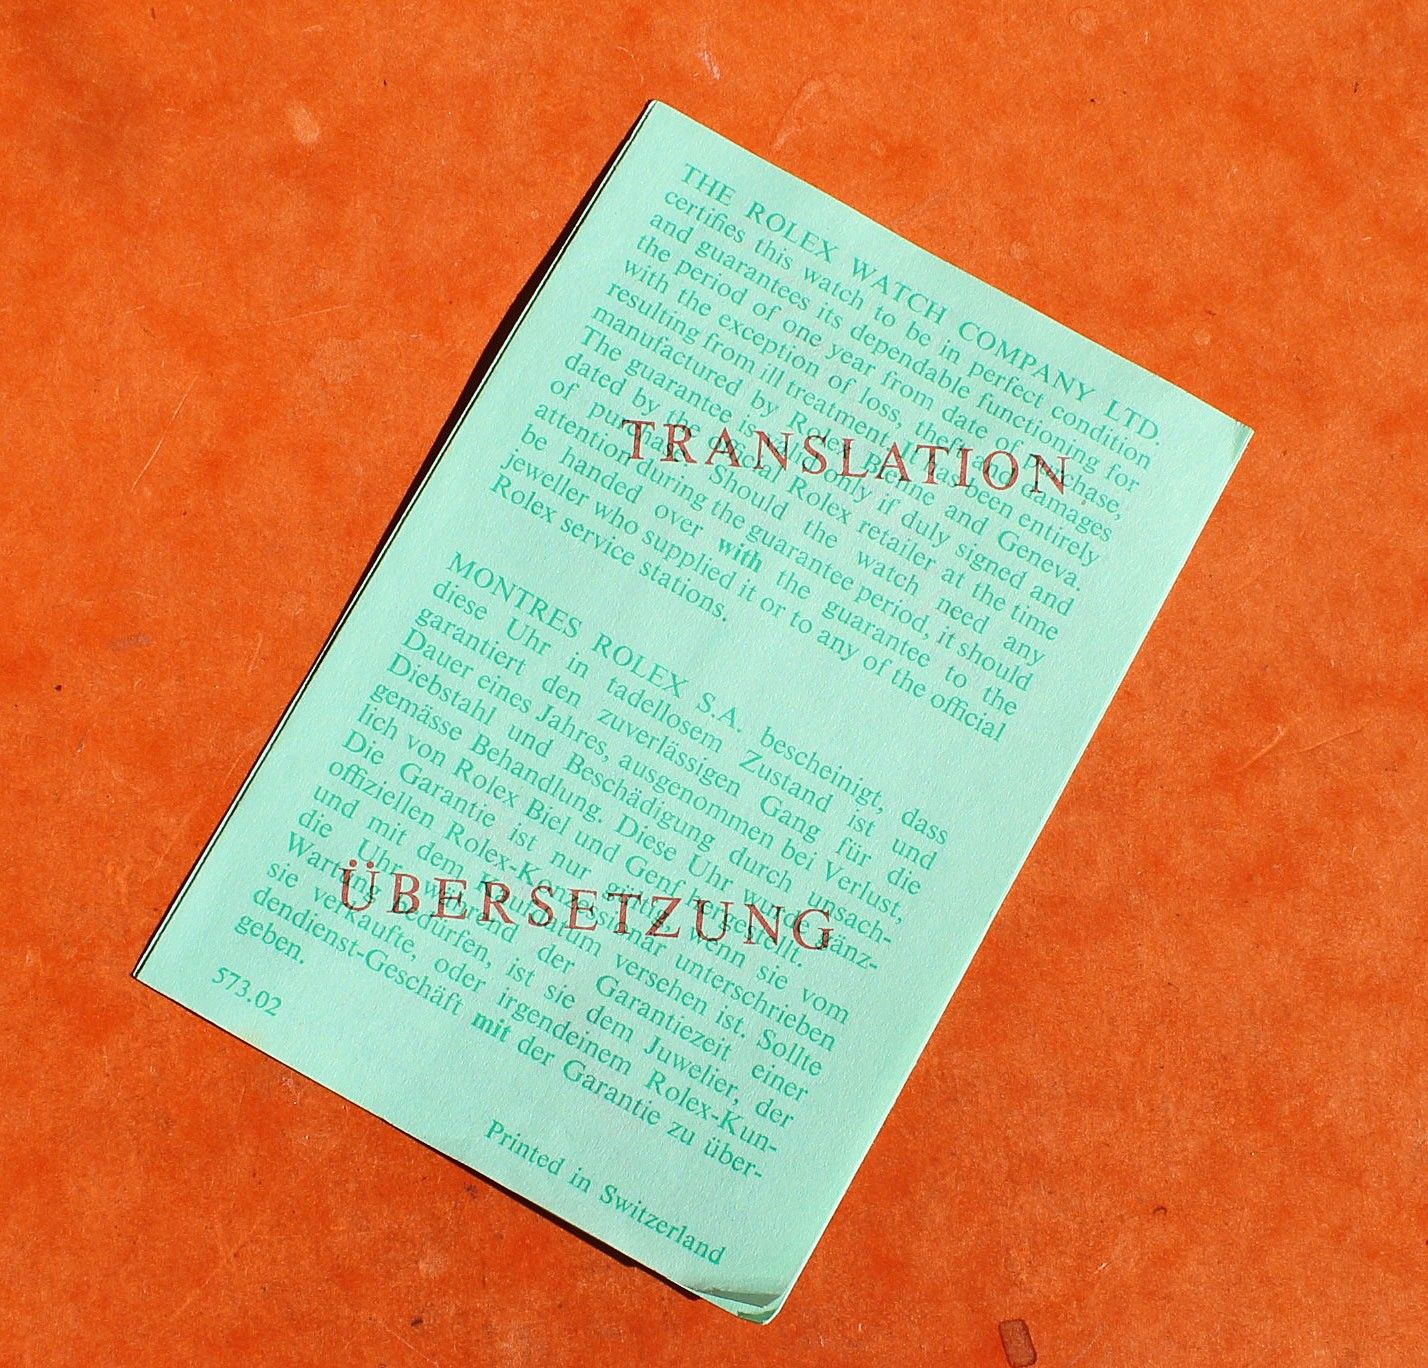 THE ROLEX WATCH COMPANY LTD.
certifies this watch to be in perfect condition
and guarantees its dependable functioning for
the period of one year from date of purchase,
with the exception of loss, theft and damages
resulting from ill treatment. It has been entirely
manufactured by Rolex Bienne and Geneva.
The guarantee is valid only if duly signed and
dated by the official Rolex retailer at the time
of purchase. Should the watch need any
attention during the guarantee period, it should
be handed over with the guarantee to the
jeweller who supplied it or to any of the official
Rolex service stations.
TRANSLATION
MONTRES ROLEX S.A. bescheinigt, dass
diese Uhr in tadellosem Zustand ist und
garantiert den zuverlässigen Gang für die
Dauer eines Jahres, ausgenommen bei Verlust,
Diebstahl und Beschädigung durch unsach-
gemässe Behandlung. Diese Uhr wurde gänz-
lich von Rolex Biel und Genf hergestellt.
Die Garantie ist nur gültig, wenn sie vom
offiziellen Rolex-Konzessionär unterschrieben
und mit dem Kaufdatum versehen ist. Sollte
die Uhr während der Garantiezeit einer
Wartung bedürfen, ist sie dem Juwelier, der
sie verkaufte, oder irgendeinem Rolex-Kun-
dendienst-Geschäft mit der Garantie zu über-
geben.
ÜBERSETZUNG
573.02
Printed in Switzerland